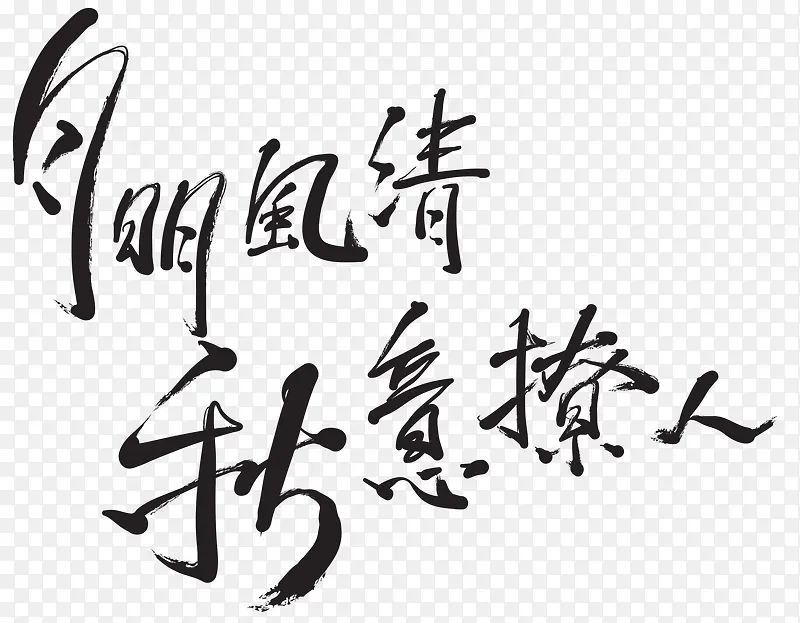 月明風清
秋意撩人